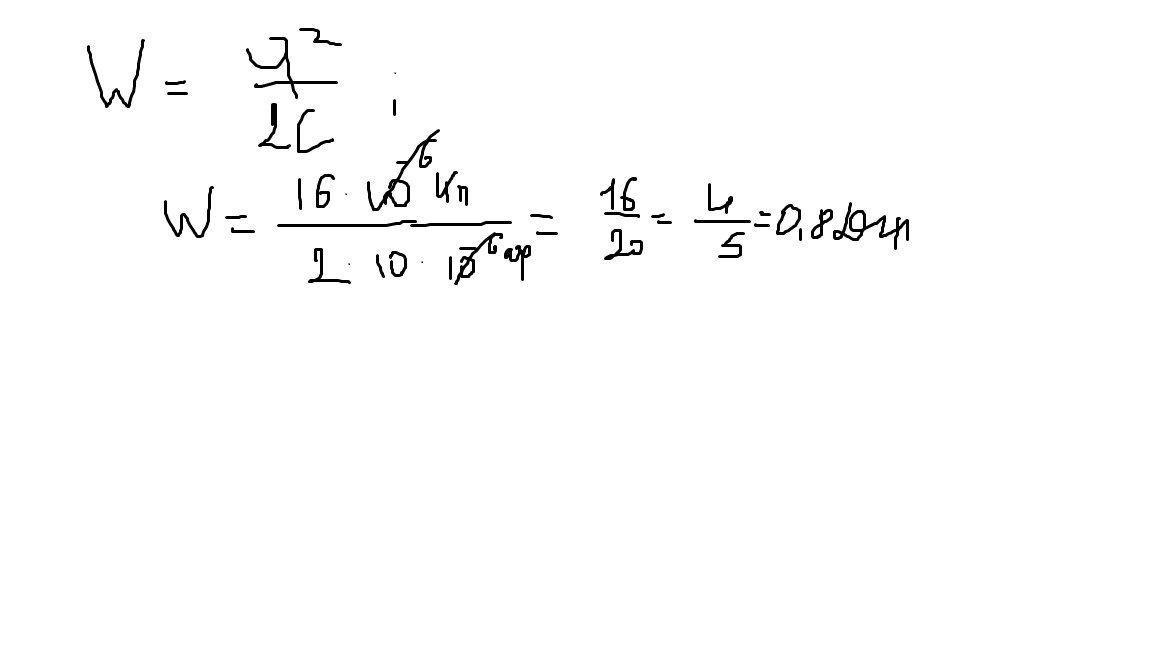 W = q²/2C ;
W = 16 · 10⁻⁶ Кл / 2 · 10 · 10⁻⁶ ф = 16/20 = 4/5 = 0,8 Дж